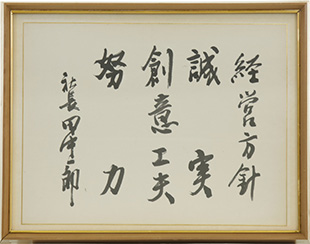 経営方針
誠実
創意工夫
努力
社長 田中一郎